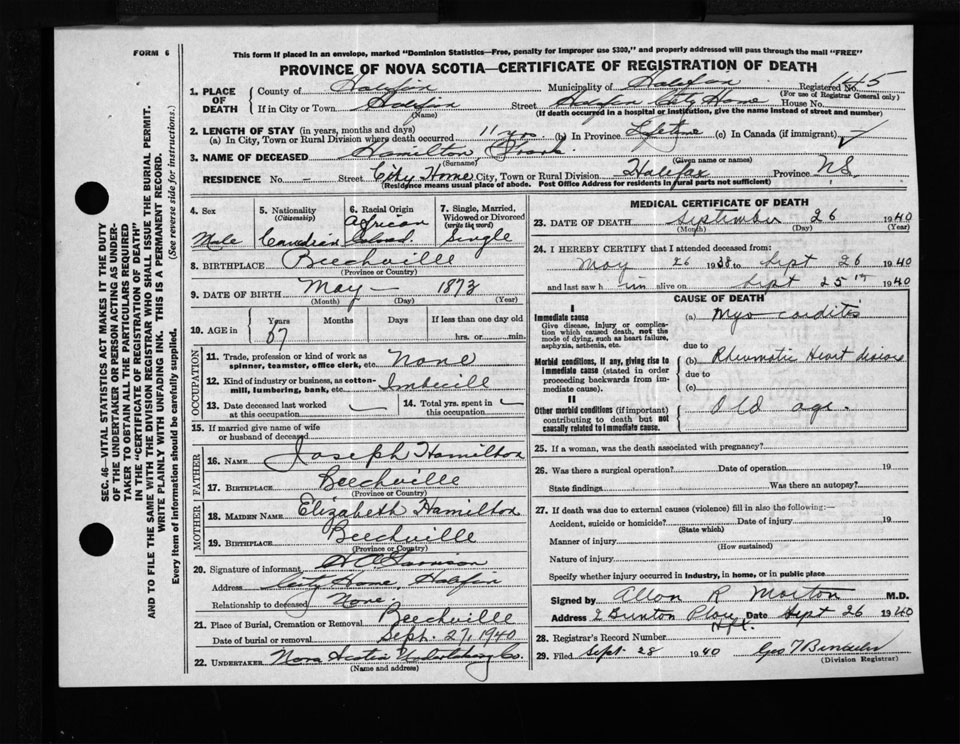 FORM 6
This form if placed in an envelope, marked "Dominion Statistics—Free, penalty for improper use $300," and properly addressed will pass through the mail "FREE"
PROVINCE OF NOVA SCOTIA—CERTIFICATE OF REGISTRATION OF DEATH
SEC. 46—VITAL STATISTICS ACT MAKES IT THE DUTY
OF THE UNDERTAKER OR PERSON ACTING AS UNDER-
TAKER TO OBTAIN ALL THE PARTICULARS REQUIRED
IN THE "CERTIFICATE OF REGISTRATION OF DEATH"
AND TO FILE THE SAME WITH THE DIVISION REGISTRAR WHO SHALL ISSUE THE BURIAL PERMIT.
WRITE PLAINLY WITH UNFADING INK. THIS IS A PERMANENT RECORD.
Every item of information should be carefully supplied. (See reverse side for instructions.)
1. PLACE OF DEATH County of Halifax Municipality of Halifax Registered No. 145
(For use of Registrar General only)
If in City or Town Halifax Street Halifax City Home House No.
(Name) (If death occurred in a hospital or institution, give the name instead of street and number)
2. LENGTH OF STAY (in years, months and days)
(a) In City, Town or Rural Division where death occurred 11 yrs (b) In Province Lifetime (c) In Canada (if immigrant) ✓
3. NAME OF DECEASED Hamilton Frank
(Surname) (Given name or names)
RESIDENCE No. – Street City Home City, Town or Rural Division Halifax Province N.S.
(Residence means usual place of abode. Post Office Address for residents in rural parts not sufficient)
4. Sex Male
5. Nationality (Citizenship) Canadian
6. Racial Origin African
7. Single, Married, Widowed or Divorced (write the word) Single
8. BIRTHPLACE Beechville
(Province or Country)
9. DATE OF BIRTH May – 1873
(Month) (Day) (Year)
10. AGE in Years Months Days If less than one day old
67 hrs. or min.
OCCUPATION
11. Trade, profession or kind of work as spinner, teamster, office clerk, etc. None
12. Kind of industry or business, as cotton-mill, lumbering, bank, etc. Imbecill
13. Date deceased last worked at this occupation
14. Total yrs. spent in this occupation
15. If married give name of wife or husband of deceased
FATHER
16. NAME Joseph Hamilton
17. BIRTHPLACE Beechville
(Province or Country)
MOTHER
18. MAIDEN NAME Elizabeth Hamilton
19. BIRTHPLACE Beechville
(Province or Country)
20. Signature of informant
Address City Home Halifax
Relationship to deceased None.
21. Place of Burial, Cremation or Removal Beechville
Date of burial or removal Sept. 27, 1940
22. UNDERTAKER Nova Scotia Undertaking Co.
(Name and address)
MEDICAL CERTIFICATE OF DEATH
23. DATE OF DEATH September 26 1940
(Month) (Day) (Year)
24. I HEREBY CERTIFY that I attended deceased from:
May 26 1938 to Sept 26 1940
and last saw him alive on Sept 25th 1940
CAUSE OF DEATH
I
Immediate cause (a) Myo carditis
Give disease, injury or complication which caused death, not the mode of dying, such as heart failure, asphyxia, asthenia, etc.
due to
Morbid conditions, if any, giving rise to immediate cause (stated in order proceeding backwards from immediate cause).
(b) Rheumatic Heart disease
due to
(c)
II
Other morbid conditions (if important) contributing to death but not causally related to immediate cause.
Old age.
25. If a woman, was the death associated with pregnancy?
26. Was there a surgical operation? Date of operation 19
State findings Was there an autopsy?
27. If death was due to external causes (violence) fill in also the following:—
Accident, suicide or homicide? Date of injury 19
(State which)
Manner of injury
(How sustained)
Nature of injury
Specify whether injury occurred in industry, in home, or in public place
Signed by Allan R Morton M.D.
Address Date Sept 26 1940
Hfx.
28. Registrar's Record Number
29. Filed Sept. 28 1940 Geo
(Division Registrar)